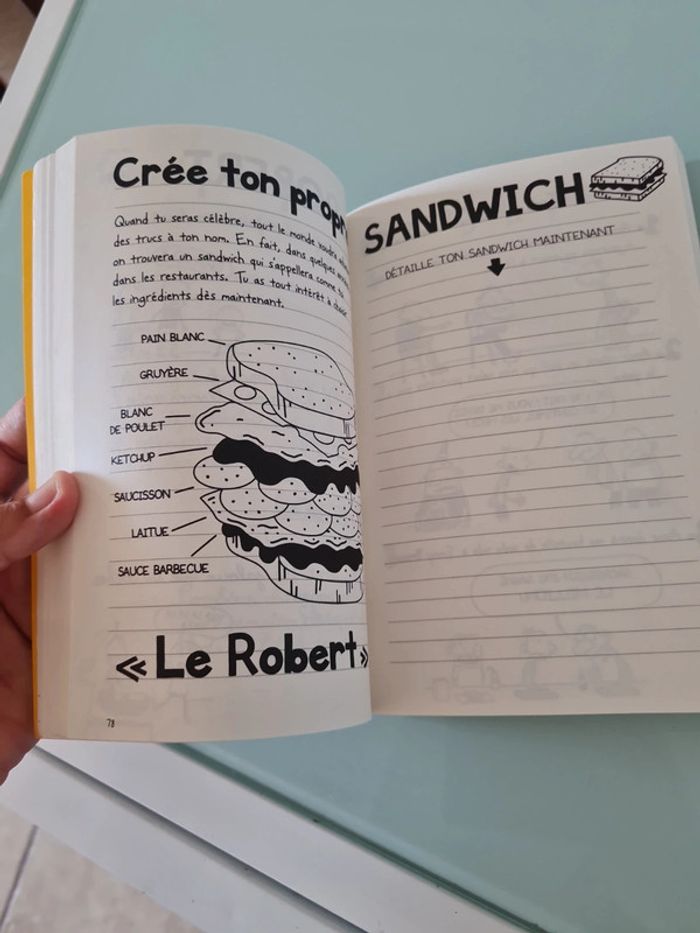 Crée ton propr
Quand tu seras célèbre, tout le monde voudra
des trucs à ton nom. En fait, dans quelques
on trouvera un sandwich qui s'appellera comme
dans les restaurants. Tu as tout intérêt à
les ingrédients dès maintenant.
PAIN BLANC
GRUYÈRE
BLANC
DE POULET
KETCHUP
SAUCISSON
LAITUE
SAUCE BARBECUE
« Le Robert »
78
SANDWICH
DÉTAILLE TON SANDWICH MAINTENANT